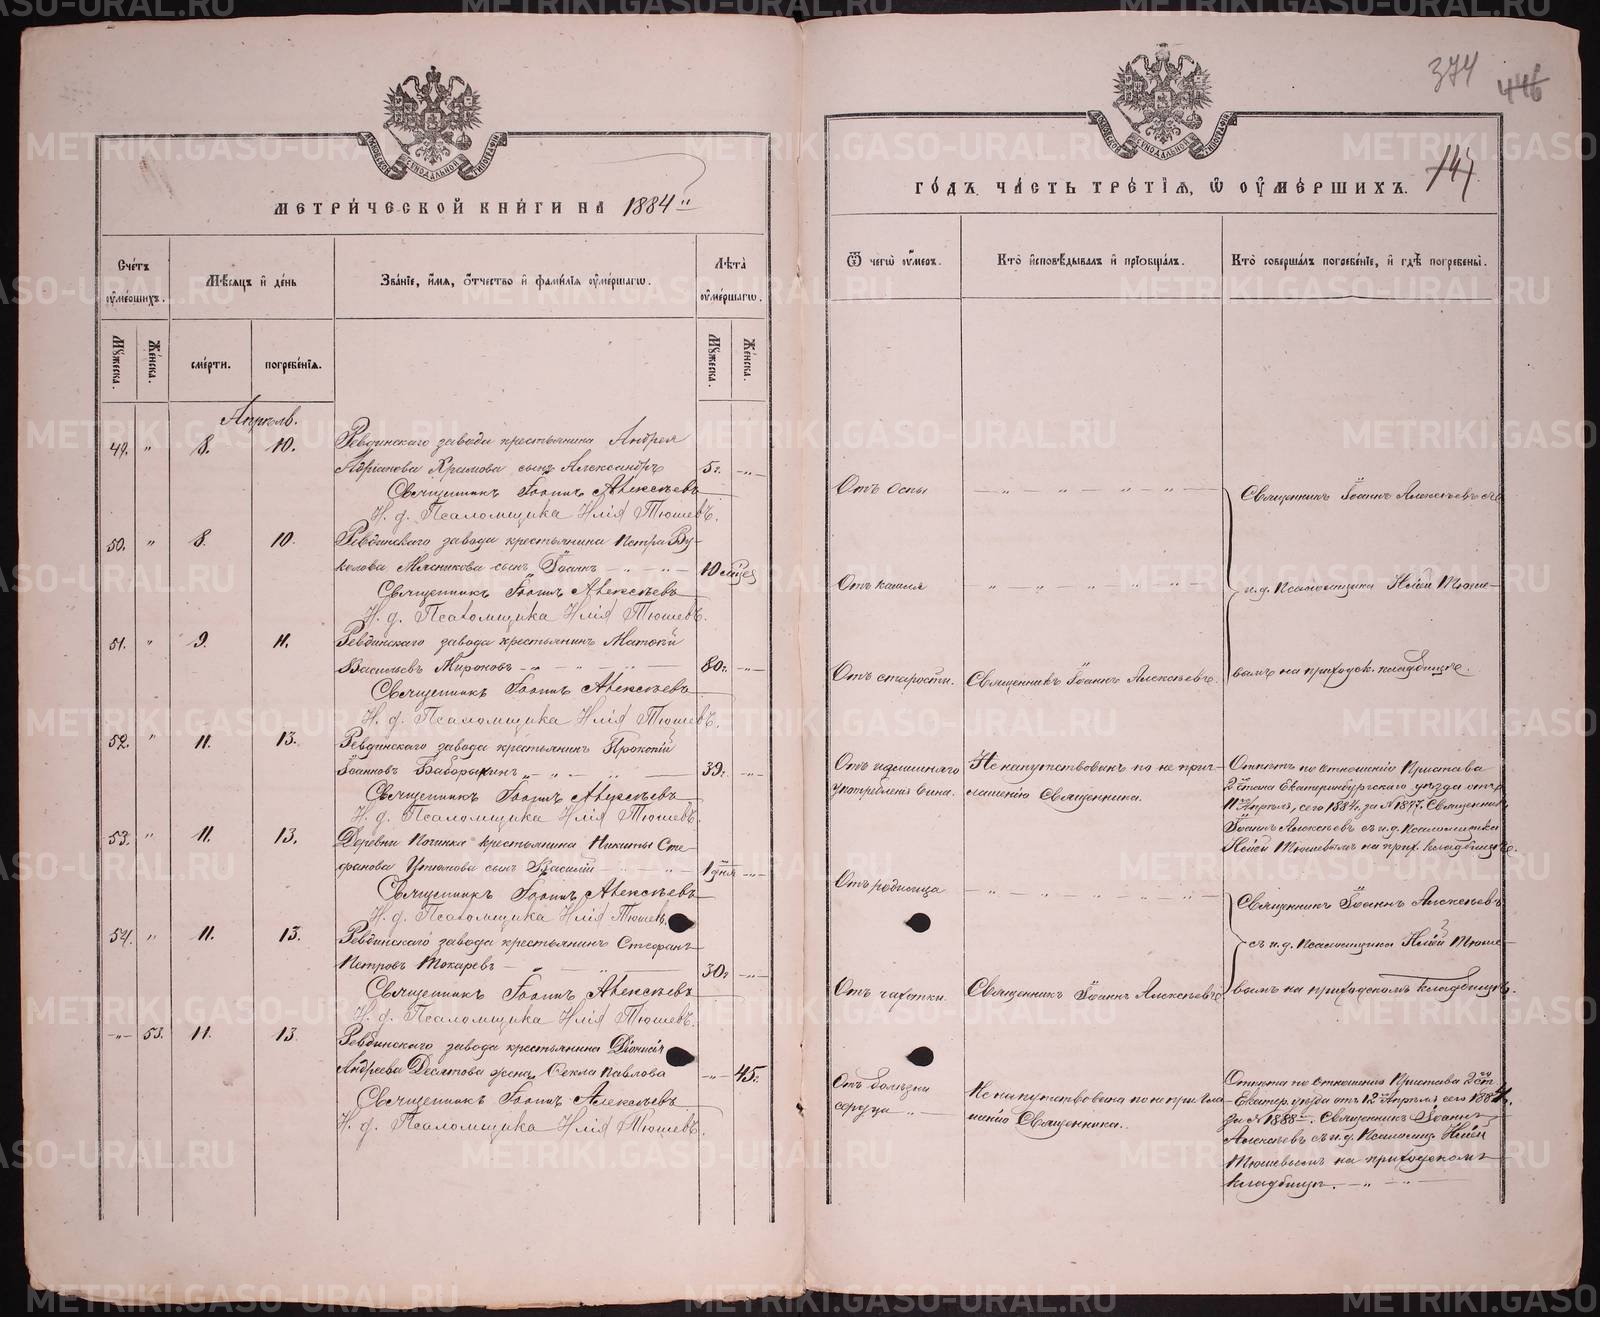 МЕТРИ́ЧЕСКОЙ КНИ́ГИ НА 1884
Сче́тъ оу҆ме́ршихъ.
Мѣсѧцъ и҆ де́нь
Зва́нїе, и҆́мѧ, ѻ҆́тчество и҆ фамилїѧ оу҆ме́ршагѡ.
Лѣта̀ оу҆ме́ршагѡ.
Мꙋжеска.
Же́нска.
сме́рти.
погребе́нїѧ.
Мꙋжеска.
Же́нска.
Апрѣль.
49. " 8. 10. Ревдинскаго завода крестьянина Андрея
Адріанова Храмова сынъ Александръ 5 г. -"-
Священникъ Іоаннъ Алексѣевъ
И. д. Псаломщика Илія Тюшевъ.
50. " 8. 10. Ревдинскаго завода крестьянина Петра Ву-
колова Мясникова сынъ Іоаннъ 10 мѣсец
Священникъ Іоаннъ Алексѣевъ
И. д. Псаломщика Илія Тюшевъ.
51. " 9. 11. Ревдинскаго завода крестьянинъ Матѳій
Васильевъ Мироновъ 80 г. -"-
Священникъ Іоаннъ Алексѣевъ
И. д. Псаломщика Илія Тюшевъ.
52. " 11. 13. Ревдинскаго завода крестьянинъ Прокопій
Іоанновъ Баборыкинъ 39 г. -"-
Священникъ Іоаннъ Алексѣевъ
И. д. Псаломщика Илія Тюшевъ.
53. " 11. 13. Деревни Починка крестьянина Никиты Сте-
фанова Утюмова сынъ Василій 1 дня -"-
Священникъ Іоаннъ Алексѣевъ
И. д. Псаломщика Илія Тюшевъ.
54. " 11. 13. Ревдинскаго завода крестьянинъ Стефанъ
Петровъ Токаревъ 30 г. -"-
Священникъ Іоаннъ Алексѣевъ
И. д. Псаломщика Илія Тюшевъ.
-"- 53. 11. 13 Ревдинскаго завода крестьянина Діонисія
Андреева Десятова жена Ѳекла Павлова -"- 45 г.
Священникъ Іоаннъ Алексѣевъ
И. д. Псаломщика Илія Тюшевъ.
374 446
147
ГО́ДЪ, ЧА́СТЬ ТРЕ́ТЇѦ, Ѡ҆ ОУ҆МЕ́РШИХЪ.
Ѿ чегѡ̀ оу҆́меръ.
Кто̀ и҆сповѣ́дывалъ и҆ прїѻбща́лъ.
Кто̀ соверша́лъ погребе́нїе, и҆ гдѣ̀ погребены̀.
Отъ оспы
Священникъ Іоаннъ Алексѣевъ съ
Отъ кашля
и.д. Псаломщика Иліей Тюше-
Отъ старости. Священникъ Іоаннъ Алексѣевъ.
вымъ на приходск. кладбищѣ.
Отъ излишняго
употребленія вина.
Не напутствованъ по не приг-
лашенію Священника.
Отпѣтъ по отношенію Пристава
2 стана Екатеринбургскаго уѣзда отъ
11 Апрѣля, сего 1884 г. за № 1877. Священникъ
Іоаннъ Алексѣевъ съ и.д. Псаломщика
Иліей Тюшевымъ на прих. кладбищѣ.
Отъ родимца
Священникъ Іоаннъ Алексѣевъ
съ и.д. Псаломщика Иліей Тюше-
Отъ чахотки. Священникъ Іоаннъ Алексѣевъ
вымъ на приходскомъ кладбищѣ.
Отъ болѣзни
сердца
Не напутствована по не пригла
шенію Священника.
Отпѣта по отношенію Пристава 2 ст.
Екатер. уѣзда отъ 12 Апрѣля сего 1884 г.
за № 1888. Священникъ Іоаннъ
Алексѣевъ съ и.д. Псаломщ. Иліей
Тюшевымъ на приходскомъ
кладбищѣ.
METRIKI.GASO-URAL.RU